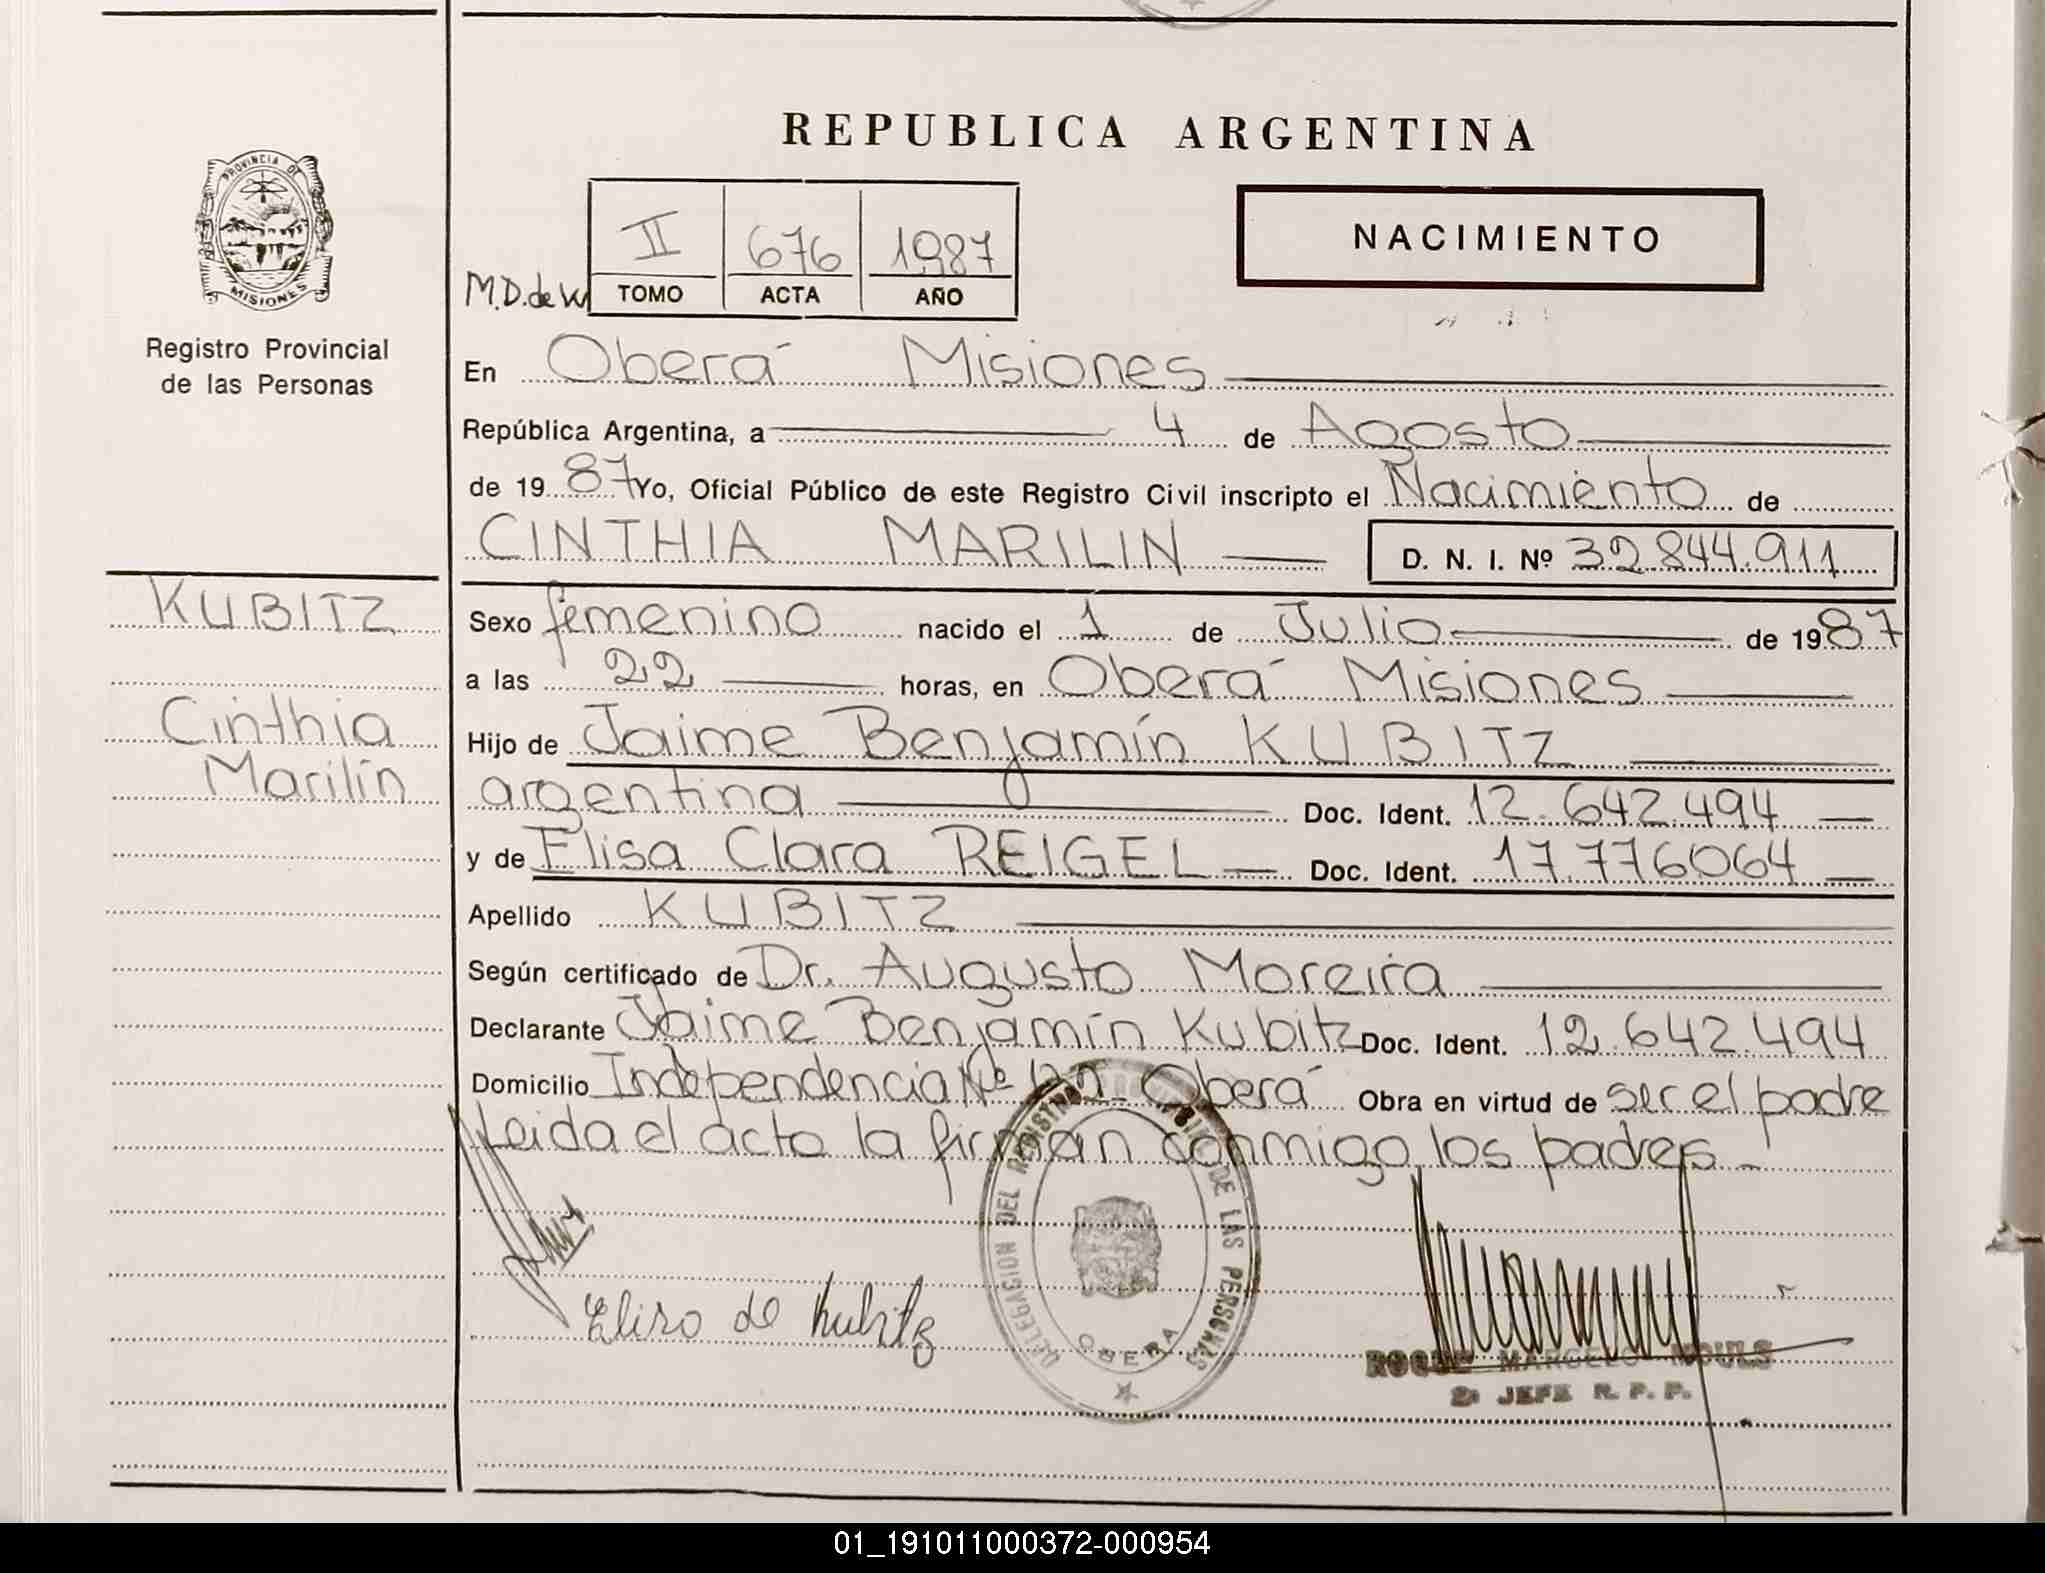 REPUBLICA ARGENTINA
PROVINCIA DE
MISIONES
Registro Provincial
de las Personas
NACIMIENTO
II 676 1987
M.D. de W TOMO ACTA AÑO
En Oberá Misiones
República Argentina, a 4 de Agosto
de 19 87 Yo, Oficial Público de este Registro Civil inscripto el Nacimiento de
CINTHIA MARILIN D. N. I. Nº 32.844.911
KUBITZ
Cinthia
Marilín
Sexo femenino nacido el 1 de Julio de 1987
a las 22 horas, en Oberá Misiones
Hijo de Jaime Benjamín KUBITZ
argentina Doc. Ident. 12.642.494
y de Elisa Clara REIGEL Doc. Ident. 17.776064
Apellido KUBITZ
Según certificado de Dr. Augusto Moreira
Declarante Jaime Benjamín Kubitz Doc. Ident. 12.642.494
Domicilio Independencia Nº Oberá Obra en virtud de ser el padre
Leida el acta la firman conmigo los padres
Elisa de Kubitz
DELEGACION DEL REGISTRO PROVINCIAL DE LAS PERSONAS
OBERA
ROQUE MARCELO
2º JEFE R. P. P.
01_191011000372-000954